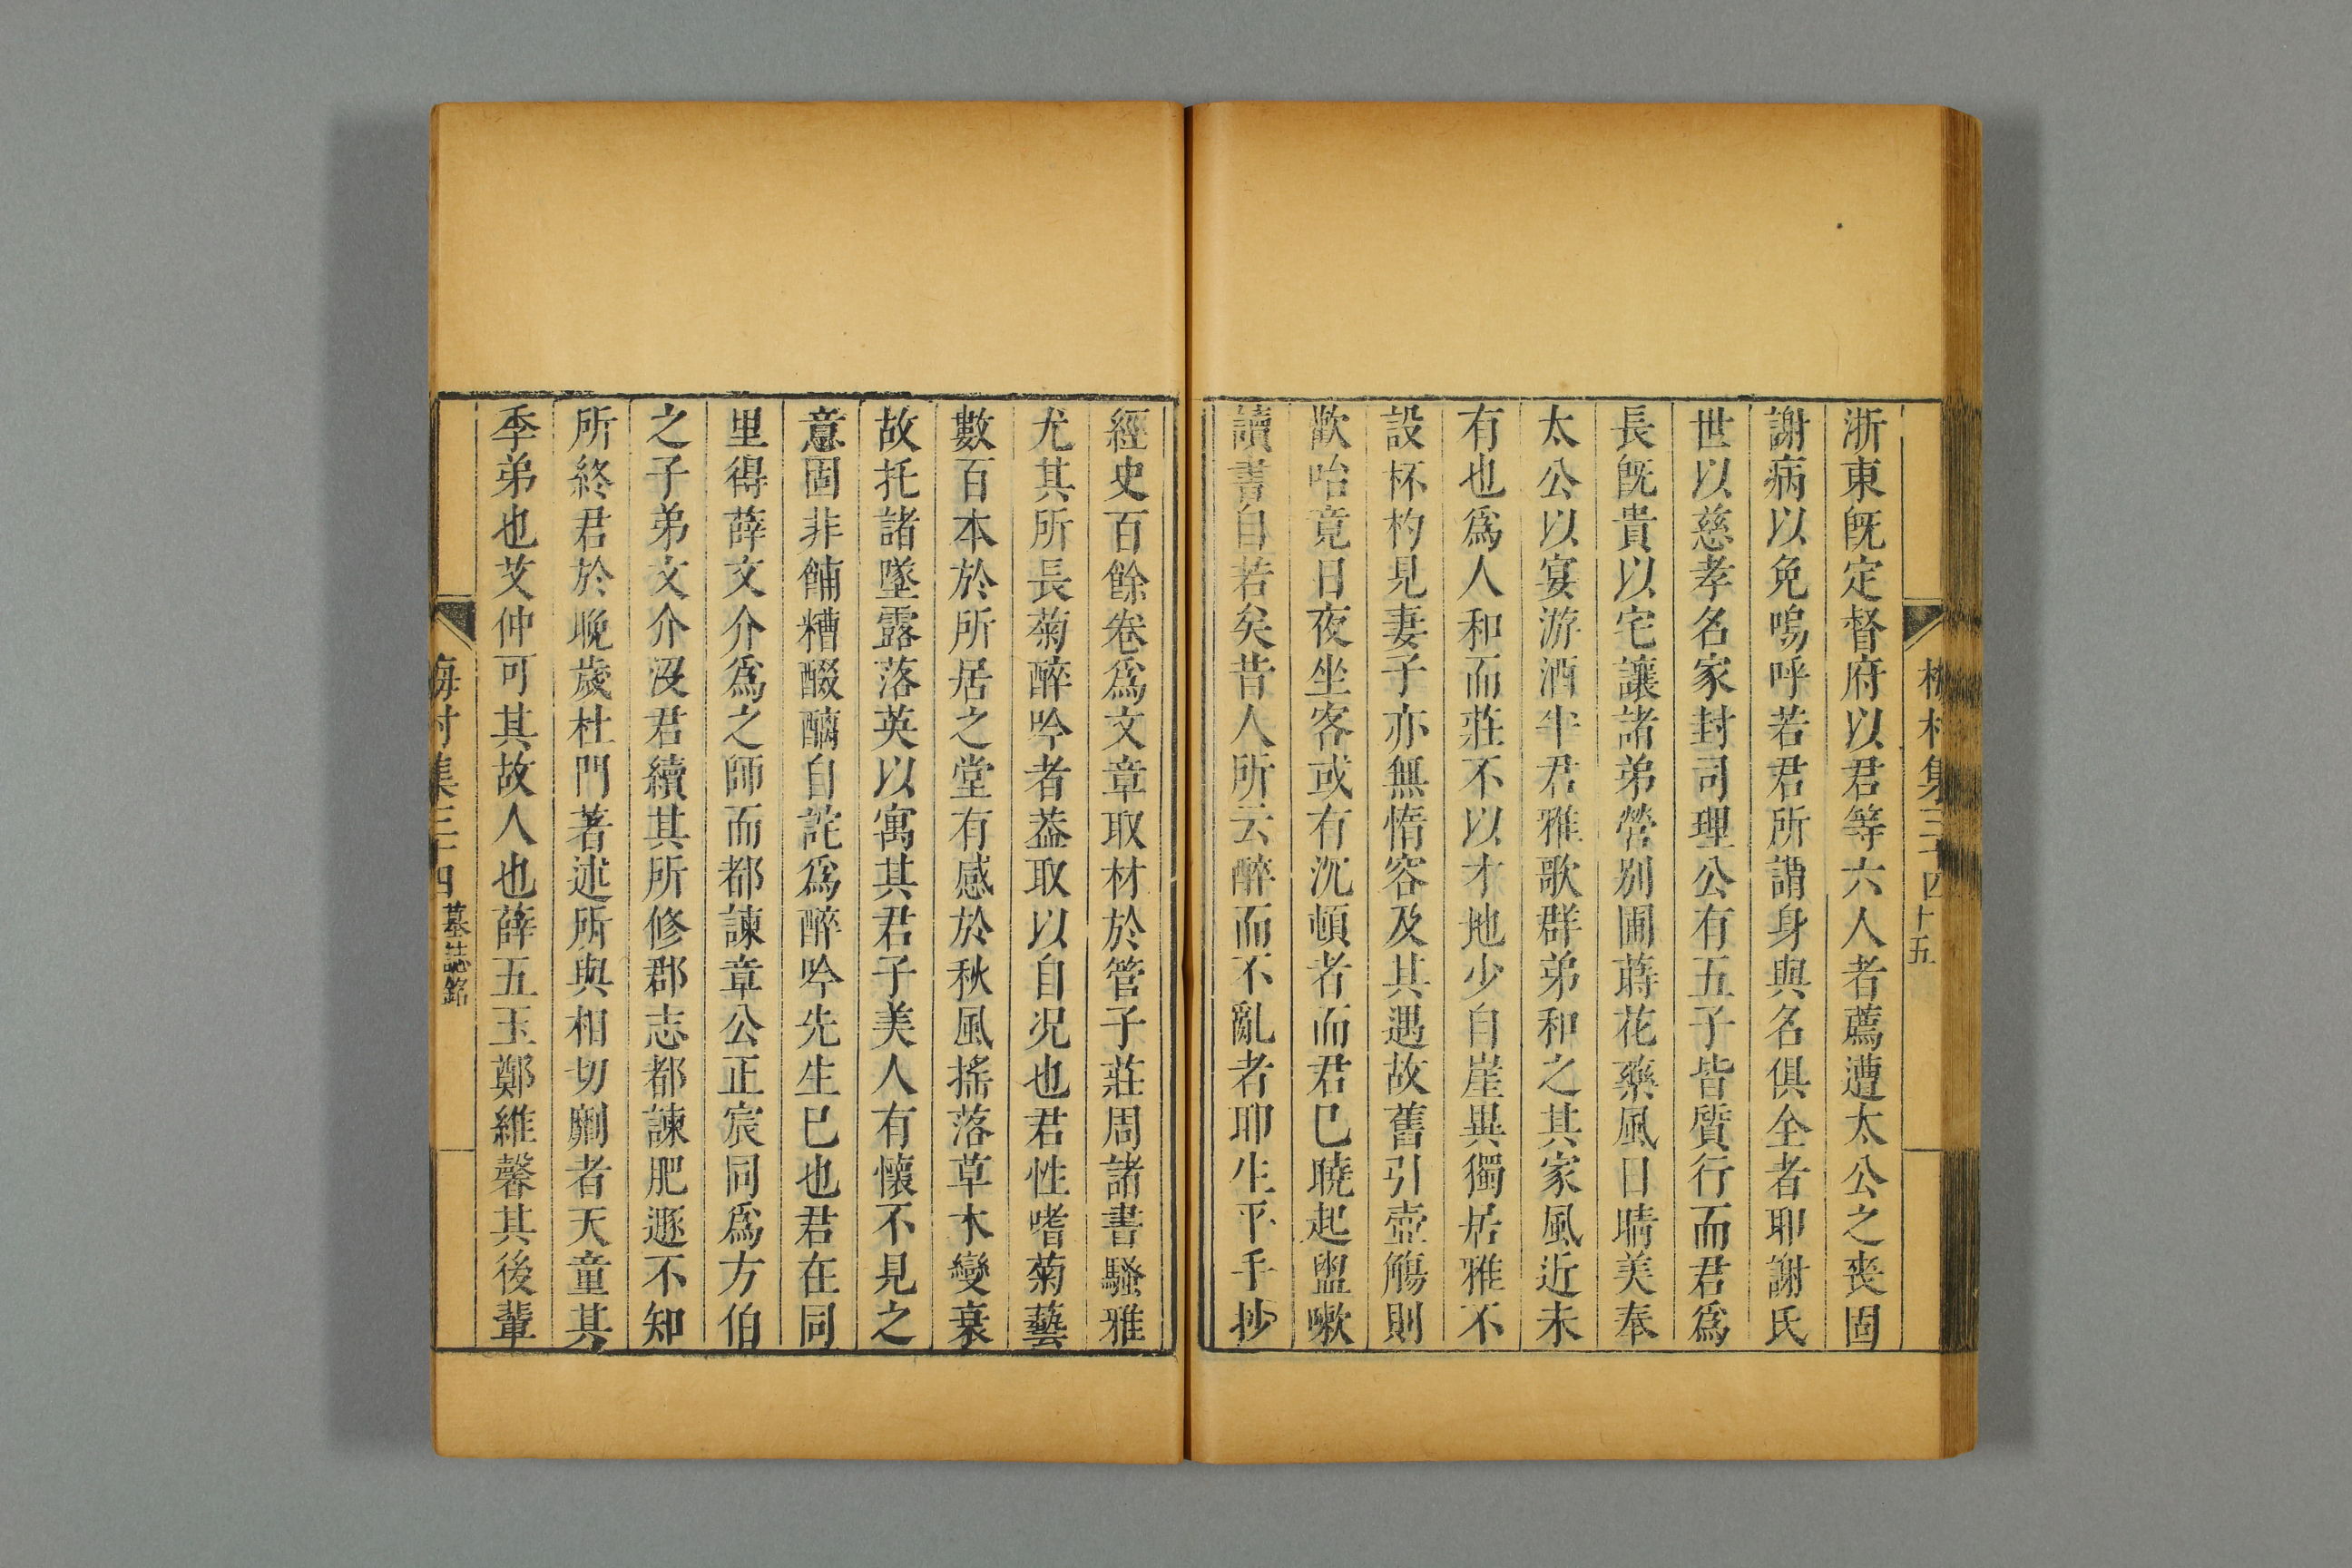 浙東旣定督府以君等六人者薦遭太公之喪固
謝病以免嗚呼若君所謂身與名俱全者耶謝氏
世以慈孝名家封司理公有五子皆質行而君爲
長旣貴以宅讓諸弟營别圃蒔花藥風日晴美奉
太公以宴游酒半君雅歌群弟和之其家風近未
有也爲人和而莊不以才地少自崖異獨居雅不
設杯杓見妻子亦無惰容及其遇故舊引壺觴則
歡咍竟日夜坐客或有沉頓者而君巳曉起盥嗽
讀書自若矣昔人所云醉而不亂者耶生平手抄
經史百餘卷爲文章取材於管子莊周諸書騷雅
尤其所長菊醉吟者葢取以自况也君性嗜菊藝
數百本於所居之堂有感於秋風搖落草木變衰
故托諸墜露落英以寓其君子美人有懷不見之
意固非餔糟醊醨自詫爲醉吟先生巳也君在同
里得薛文介爲之師而都諫章公正宸同爲方伯
之子弟文介沒君續其所修郡志都諫肥遯不知
所終君於晚歲杜門著述所與相切劘者天童其
季弟也艾仲可其故人也薛五玉鄭維馨其後輩
梅村集三十四
墓誌銘
十五